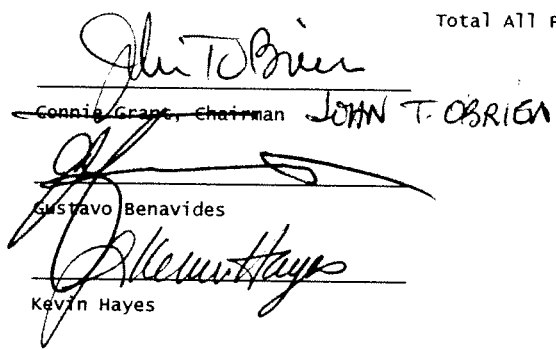 Total All
John T O'Brien
Connie Grant, Chairman JOHN T. OBRIEN
Gustavo Benavides
Kevin Hayes
Kevin Hayes